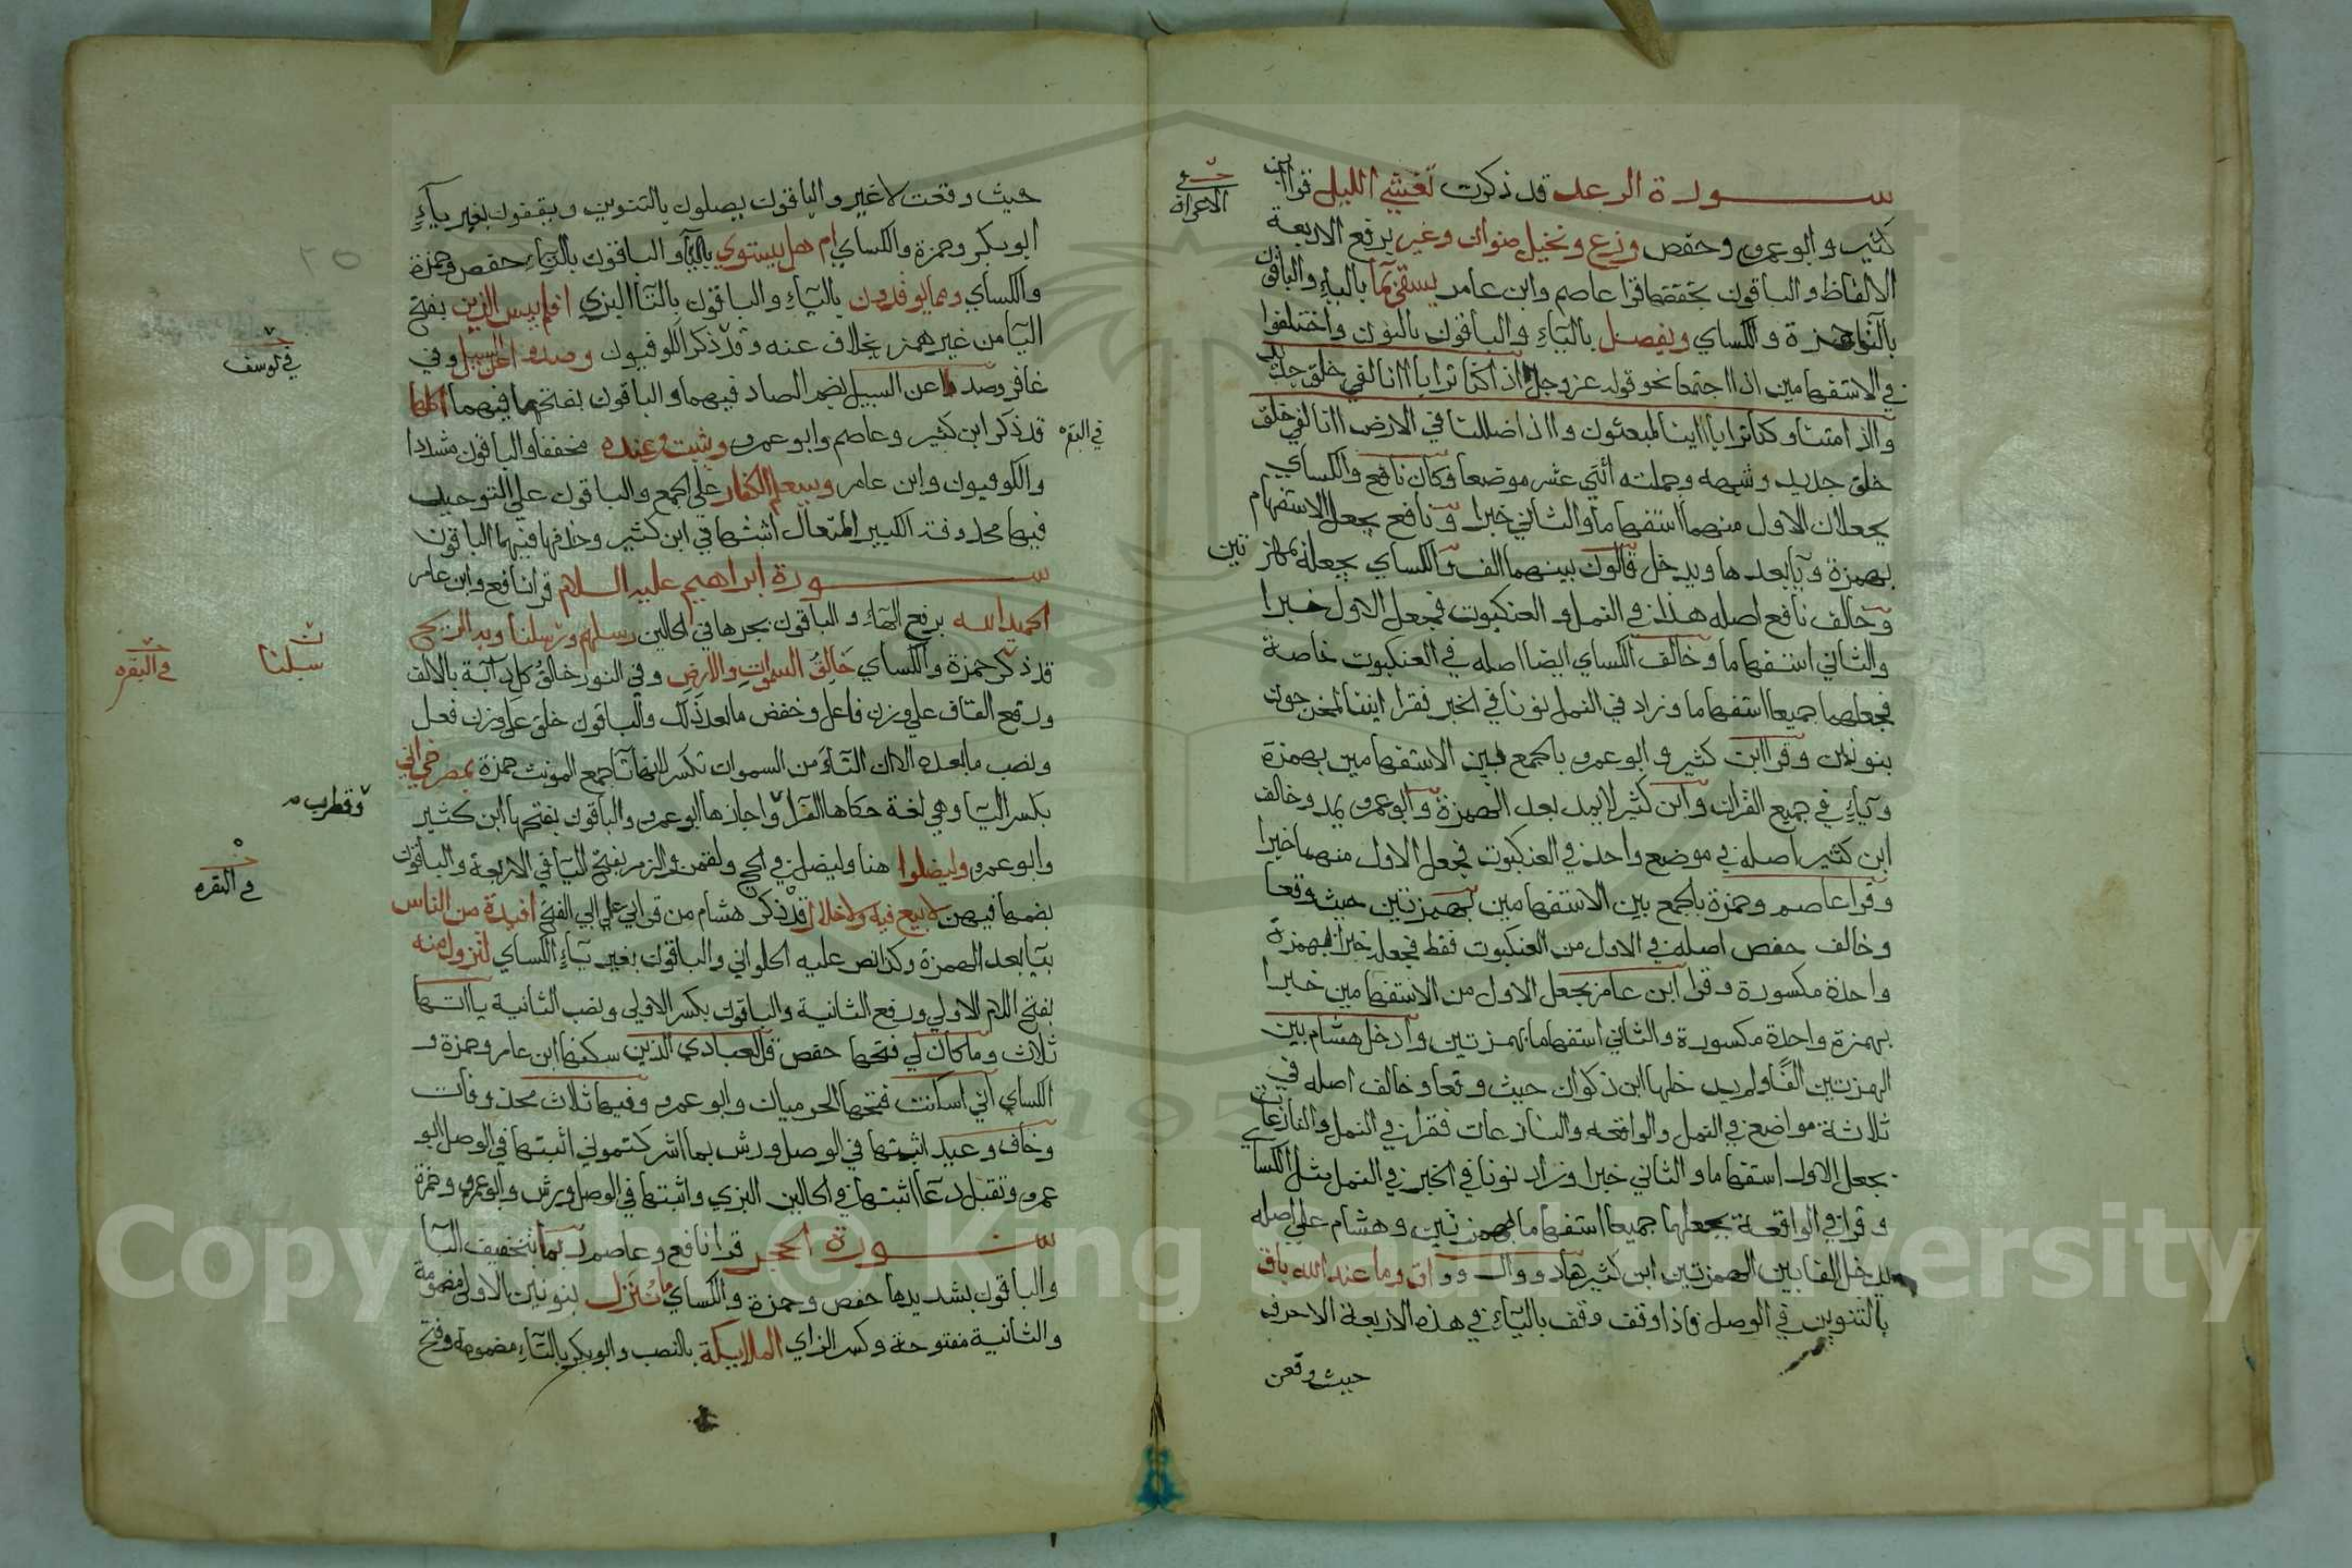 ســورة الرعد قد ذكرت تغشي الليل قرا ابن
في
الاعراف
كثير وابو عمرو وحفص وزرع ونخيل صنوان وغير برفع الاربعة
الالفاظ والباقون بخفضها قرا عاصم وابن عامر يسقى بما بالياء والباقون
بالتا حمزة والكساي ويفصل بالياء والباقون بالنون واختلفوا
في الاستفهامين اذا اجتمعا نحو قوله عز وجل ااذا كنا ترابا اانا لفي خلق جديد
وااذا متنا وكنا ترابا ااينا لمبعثون وااذا ضللنا في الارض اانا لفي خلق
خلق جديد وشبهه وجملته اثني عشر موضعا وكان نافع والكساي
يجعلان الاول منهما استفهاما والثاني خبرا ونافع يجعل الاستفهام
بهمزة ويا بعدها ويدخل قالون بينهما الف والكساي يجعله بهمزتين
وخالف نافع اصله هذا في النمل والعنكبوت فجعل الاول خبرا
والثاني استفهاما وخالف الكساي ايضا اصله في العنكبوت خاصة
فجعلهما جميعا استفهاما وزاد في النمل نونا في الخبر فقرا ايننا لمخرجون
بنونين وقرا ابن كثير وابو عمرو بالجمع بين الاستفهامين بهمزة
وياء في جميع القران وابن كثير لا يمد بعد الهمزة وابو عمرو يمد وخالف
ابن كثير اصله في موضع واحد في العنكبوت فجعل الاول منهما خبرا
وقرا عاصم وحمزة بالجمع بين الاستفهامين بهمزتين حيث وقعا
وخالف حفص اصله في الاول من العنكبوت فقط فجعله خبرا بهمزة
واحدة مكسورة وقرا ابن عامر بجعل الاول من الاستفهامين خبرا
بهمزة واحدة مكسورة والثاني استفهاما بهمزتين وادخل هشام بين
الهمزتين الفًا ولم يدخلها ابن ذكوان حيث وقعا وخالف اصله في
ثلاثة مواضع في النمل والواقعه والنازعات فقرا في النمل والنازعات
بجعل الاول استفهاما والثاني خبرا وزاد نونا في الخبر في النمل مثل الكساي
وقرا في الواقعة بجعلهما جميعا استفهاما بهمزتين وهشام على اصله
يدخل الفا بين الهمزتين ابن كثير هاد ووال وواق وما عند الله باق
بالتنوين في الوصل فاذا وقف وقف بالياء في هذه الاربعة الاحرف
حيث وقعن
حيث وقعت لا غير والباقون يصلون بالتنوين ويقفون بغير ياء
ابو بكر وحمزة والكساي ام هل يستوي بالياء والباقون بالتاء حفص وحمزة
والكساي ومما يوقدون بالياء والباقون بالتا البزي افلم ييس الذين بفتح
اليا من غير همز بخلاف عنه وقد ذكر الكوفيون وصدوا عن السبيل وفي
في يوسف
غافر وصد عن السبيل بضم الصاد فيهما والباقون بفتحها فيهما اكلها
قد ذكر ابن كثير وعاصم وابو عمرو ويثبت وعنده مخففا والباقون مشددا
في البقره
والكوفيون وابن عامر وسيعلم الكفار على الجمع والباقون على التوحيد
فيها محذوفة الكبير المتعال اثبتها في ابن كثير وحذفها فيهما الباقون
ســورة ابراهيم عليه السلام قرا نافع وابن عامر
الحميد الله برفع الهاء والباقون بجرها في الحالين رسلهم ورسلنا وبه الريح
سبلنا
في البقره
قد ذكر حمزة والكساي خَالِقُ السموات والارض وفي النور خالقُ كل دابة بالالف
ورفع القاف على وزن فاعل وخفض ما بعد ذلك والباقون خلق على وزن فعل
ونصب ما بعده الا ان التاء من السموات تكسر لانها تا جمع المونث حمزة بمصرخي اني
بكسر اليا وهي لغة حكاها الفرا واجازها ابو عمرو والباقون بفتحها ابن كثير
وقطرب
وابو عمرو وليضلوا هنا وليضل في الحج ولقمن والزمر بفتح اليا في الاربعة والباقون
بضمها فيهن لا بيع فيه ولا خلال قد ذكر هشام من قراتي على ابي الفتح افيدة من الناس
في البقره
بيا بعد الهمزة وكذا نص عليه الحلواني والباقون بغير ياء الكساي لتزول منه
بفتح اللام الاولى ورفع الثانية والباقون بكسر الاولى ونصب الثانية يااتها
ثلاث وما كان لي فتحها حفص قل لعبادي الذين سكنها ابن عامر وحمزة و
الكساي اني اسكنت فتحها الحرميان وابو عمرو وفيها ثلاث محذوفات
وخاف وعيد اثبتها في الوصل ورش بما اشركتموني اثبتها في الوصل ابو
عمرو وتقبل دعا اثبتها في الحالين البزي واثبتها في الوصل ورش وابو عمرو وحمزة
ســورة الحجر قرا نافع وعاصم ربما بتخفيف البا
والباقون بشديدها حفص وحمزة والكساي ما نُنَزل بنونين الاولى مضمومة
والثانية مفتوحة وكسر الزاي الملايكة بالنصب وابو بكر بالتاء مضمومة وفتح
Copyright © King Saud University
195